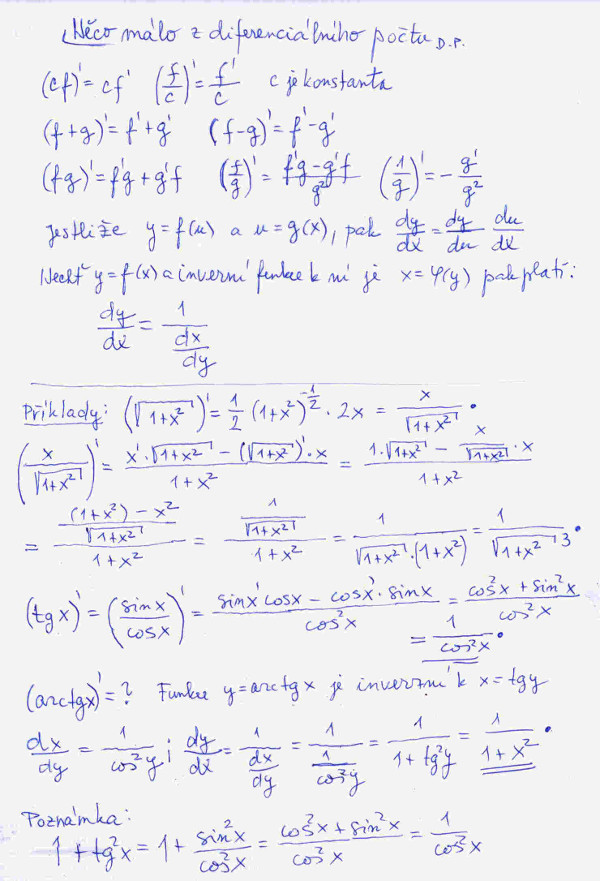 Něco málo z diferenciálního počtu D.P.
(cf)' = cf' (f/c)' = f'/c c je konstanta
(f+g)' = f'+g' (f-g)' = f'-g'
(fg)' = f'g + g'f (f/g)' = (f'g - g'f)/g² (1/g)' = - g'/g²
Jestliže y = f(u) a u = g(x), pak dy/dx = dy/du du/dx
Nechť y = f(x) a inverzní funkce k ní je x = φ(y) pak platí:
dy/dx = 1/(dx/dy)
Příklady: (√(1+x²))' = 1/2 (1+x²)^(-1/2) · 2x = x/√(1+x²) •
(x/√(1+x²))' = (x'·√(1+x²) - (√(1+x²))'·x)/(1+x²) = (1·√(1+x²) - x/√(1+x²)·x)/(1+x²)
= (((1+x²) - x²)/√(1+x²))/(1+x²) = (1/√(1+x²))/(1+x²) = 1/(√(1+x²)·(1+x²)) = 1/√(1+x²)³ •
(tg x)' = (sin x/cos x)' = (sin x' cos x - cos x' · sin x)/cos²x = (cos²x + sin²x)/cos²x
= 1/cos²x •
(arctg x)' = ? Funkce y = arctg x je inverzní k x = tg y
dx/dy = 1/cos²y ; dy/dx = 1/(dx/dy) = 1/(1/cos²y) = 1/(1+tg²y) = 1/(1+x²) •
Poznámka:
1 + tg²x = 1 + sin²x/cos²x = (cos²x + sin²x)/cos²x = 1/cos²x